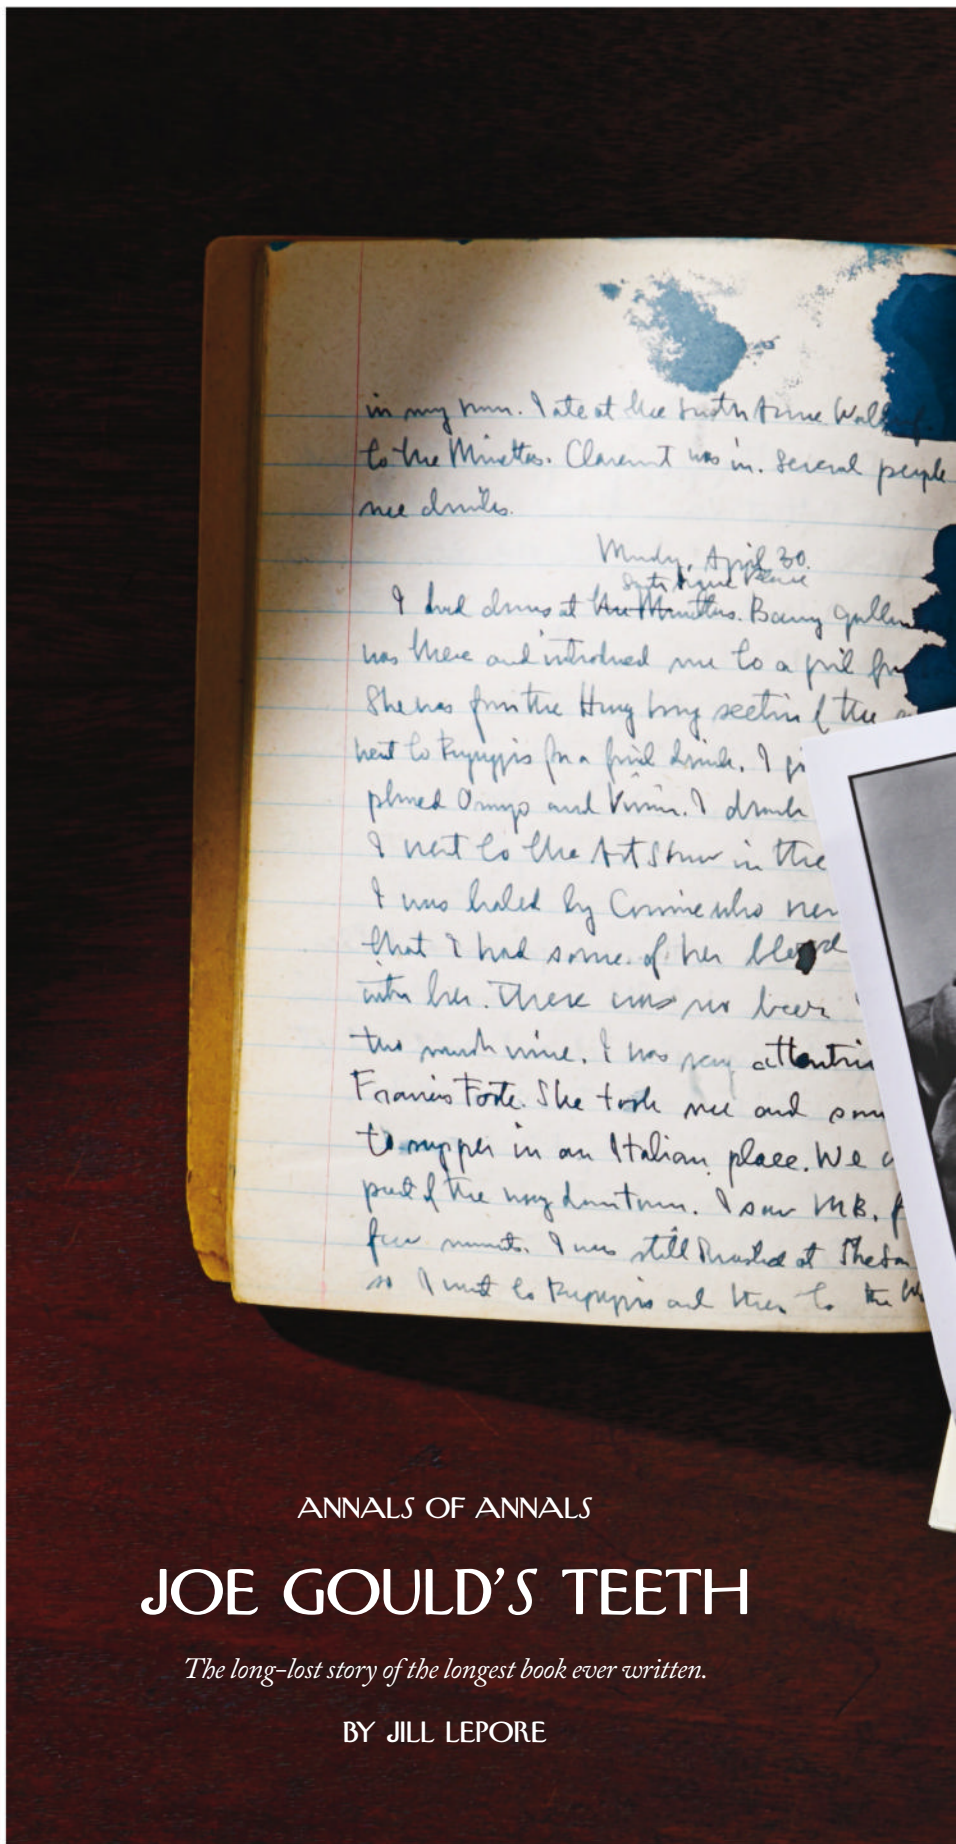 in my room. I ate at the Sixth Avenue
to the Minettas. Claremont was in. Several people
me drinks.
Monday, April 30.
Sixth Avenue Place
I had drinks at the Minettas. Barney
was there and introduced me to a girl
She was from the section of the
went to for a final drink. I
phoned and Vivian. I drank
I went to the Art Show in the
I was haled by Connie who
that I had some of her blood
into her. There was no beer
too much wine. I was very
Francis Foste. She took me and
to supper in an Italian place. We
part of the way downtown. I saw M.B.
few minutes. I was still at The
so I went to and then to the
ANNALS OF ANNALS
JOE GOULD'S TEETH
The long-lost story of the longest book ever written.
BY JILL LEPORE